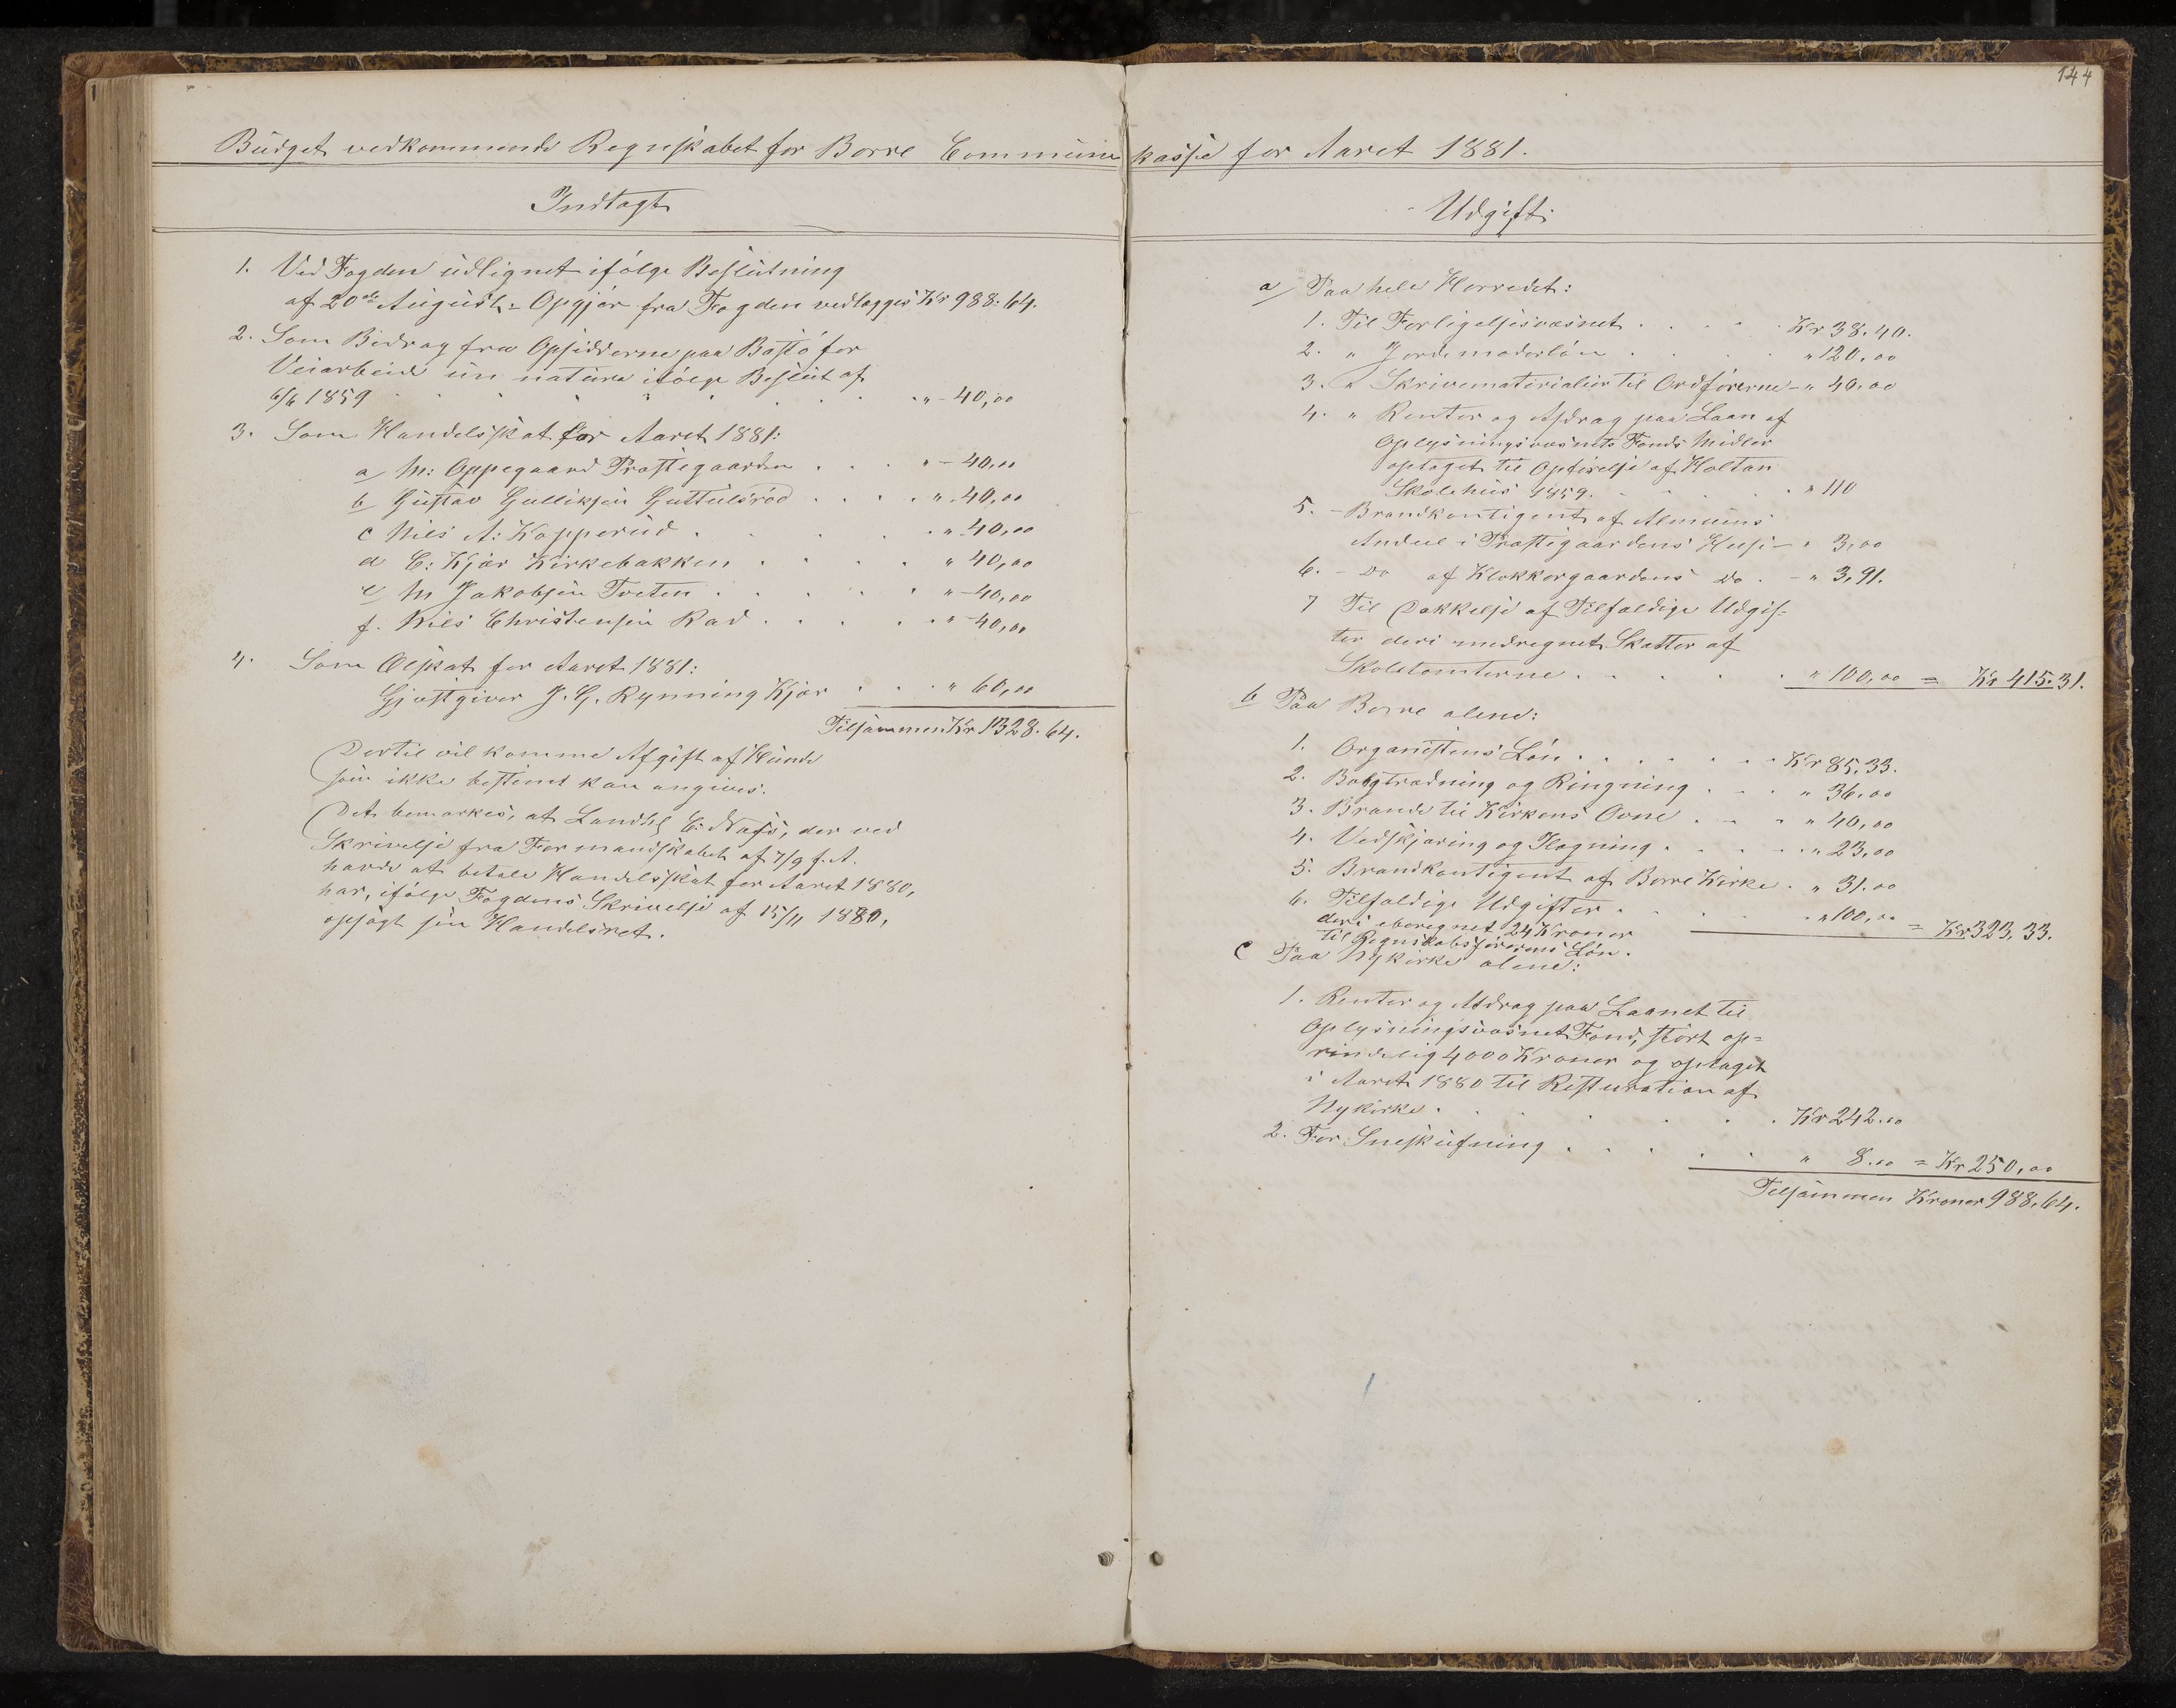 144
Budget vedkommende Regnskabet for Borre Communekasse for Aaret 1881.
Indtægt
1. Ved Fogden udlignet ifølge Beslutning
af 20de August - Opgjør fra Fogden vedlægges Kr 988.64.
2. Som Bidrag fra Opsidderne paa Bastø for
Veiarbeide in natura ifølge Beslut af
6/6 1859 . . . . . . " - 40,00
3. Som Handelsskat for Aaret 1881:
a M: Oppegaard Præstegaarden . . . " - 40,00
b Gustav Gulliksen Guttulsrød . . . . " - 40,00
c Nils A: Kopperud . . . . . " 40,00
d C: Kjær Kirkebakken . . . . " 40,00
e M Jakobsen Tveten . . . . . " - 40,00
f. Nils Christensen Rad . . . . . " - 40,00
4. Som Ølskat for Aaret 1881:
Gjæstgiver J. G. Rynning Kjær . . . . " 60,00
Tilsammen Kr 1328.64.
Dertil vil komme Afgift af Hunde
som ikke bestemt kan angives.
Det bemærkes, at Landhl C: Næss, der ved
Skrivelse fra Formandskabet af 7/9 f. A.
havde at betale Handelsskat for Aaret 1880,
har, ifølge Fogdens Skrivelse af 15/11 1880,
opsagt sin Handelsret.
Udgift:
a Paa hele Herredet:
1. Til Forligelsesvæsnet . . . . Kr 38.40.
2. " Jordemoderløn . . . . " 120,00
3. " Skrivematerialier til Ordførerne - " 40,00
4. " Renter og Afdrag paa Laan af
Oplysningsvæsnets Fonds Midler
optaget til Opførelse af Holtan
Skolehus 1859. . . . . . " 110
5. - Brandkontigent af Almuens
Andeel i Præstegaardens Huse - " 3,00
6. - Do af Klokkergaardens Do. - " 3,91.
7 Til Dækkelse af Tilfældige Udgif-
ter deri medregnet Skatter af
Skoletomterne . . . . . " 100,00 = Kr 415.31.
b Paa Borre alene:
1. Organistens Løn . . . . . . Kr 85.33.
2. Bælgtrædning og Ringning . . . " 36.00
3. Brænde til Kirkens Ovne . . . " 40,00
4. Vedskjæring og Hogning . . . . . " 23,00
5. Brandkontigent af Borre Kirke . " 31.00
6. Tilfældige Udgifter . . . . . " 100,00 = Kr 323,33.
deri iberegnet 24 Kroner
til Regnskabsførerens Løn.
c Paa Nykirke alene:
1. Renter og Afdrag paa Laanet til
Oplysningsvæsnet Fond, stort op-
rindelig 4000 Kroner og optaget
i Aaret 1880 til Resturation af
Nykirke . . . . . . Kr 242.00
2. For Sneskufning . . . . . " 8.00 = Kr 250,00
Tilsammen Kroner 988,64.